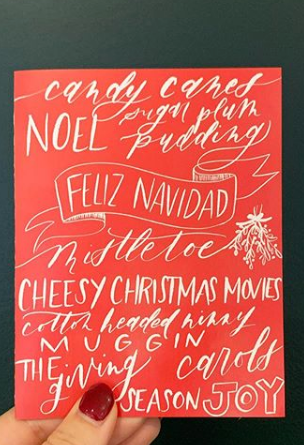 candy canes
NOEL sugar plum
pudding
FELIZ NAVIDAD
mistletoe
CHEESY CHRISTMAS MOVIES
cotton headed ninny
MUGGIN
THE giving carols
SEASON JOY